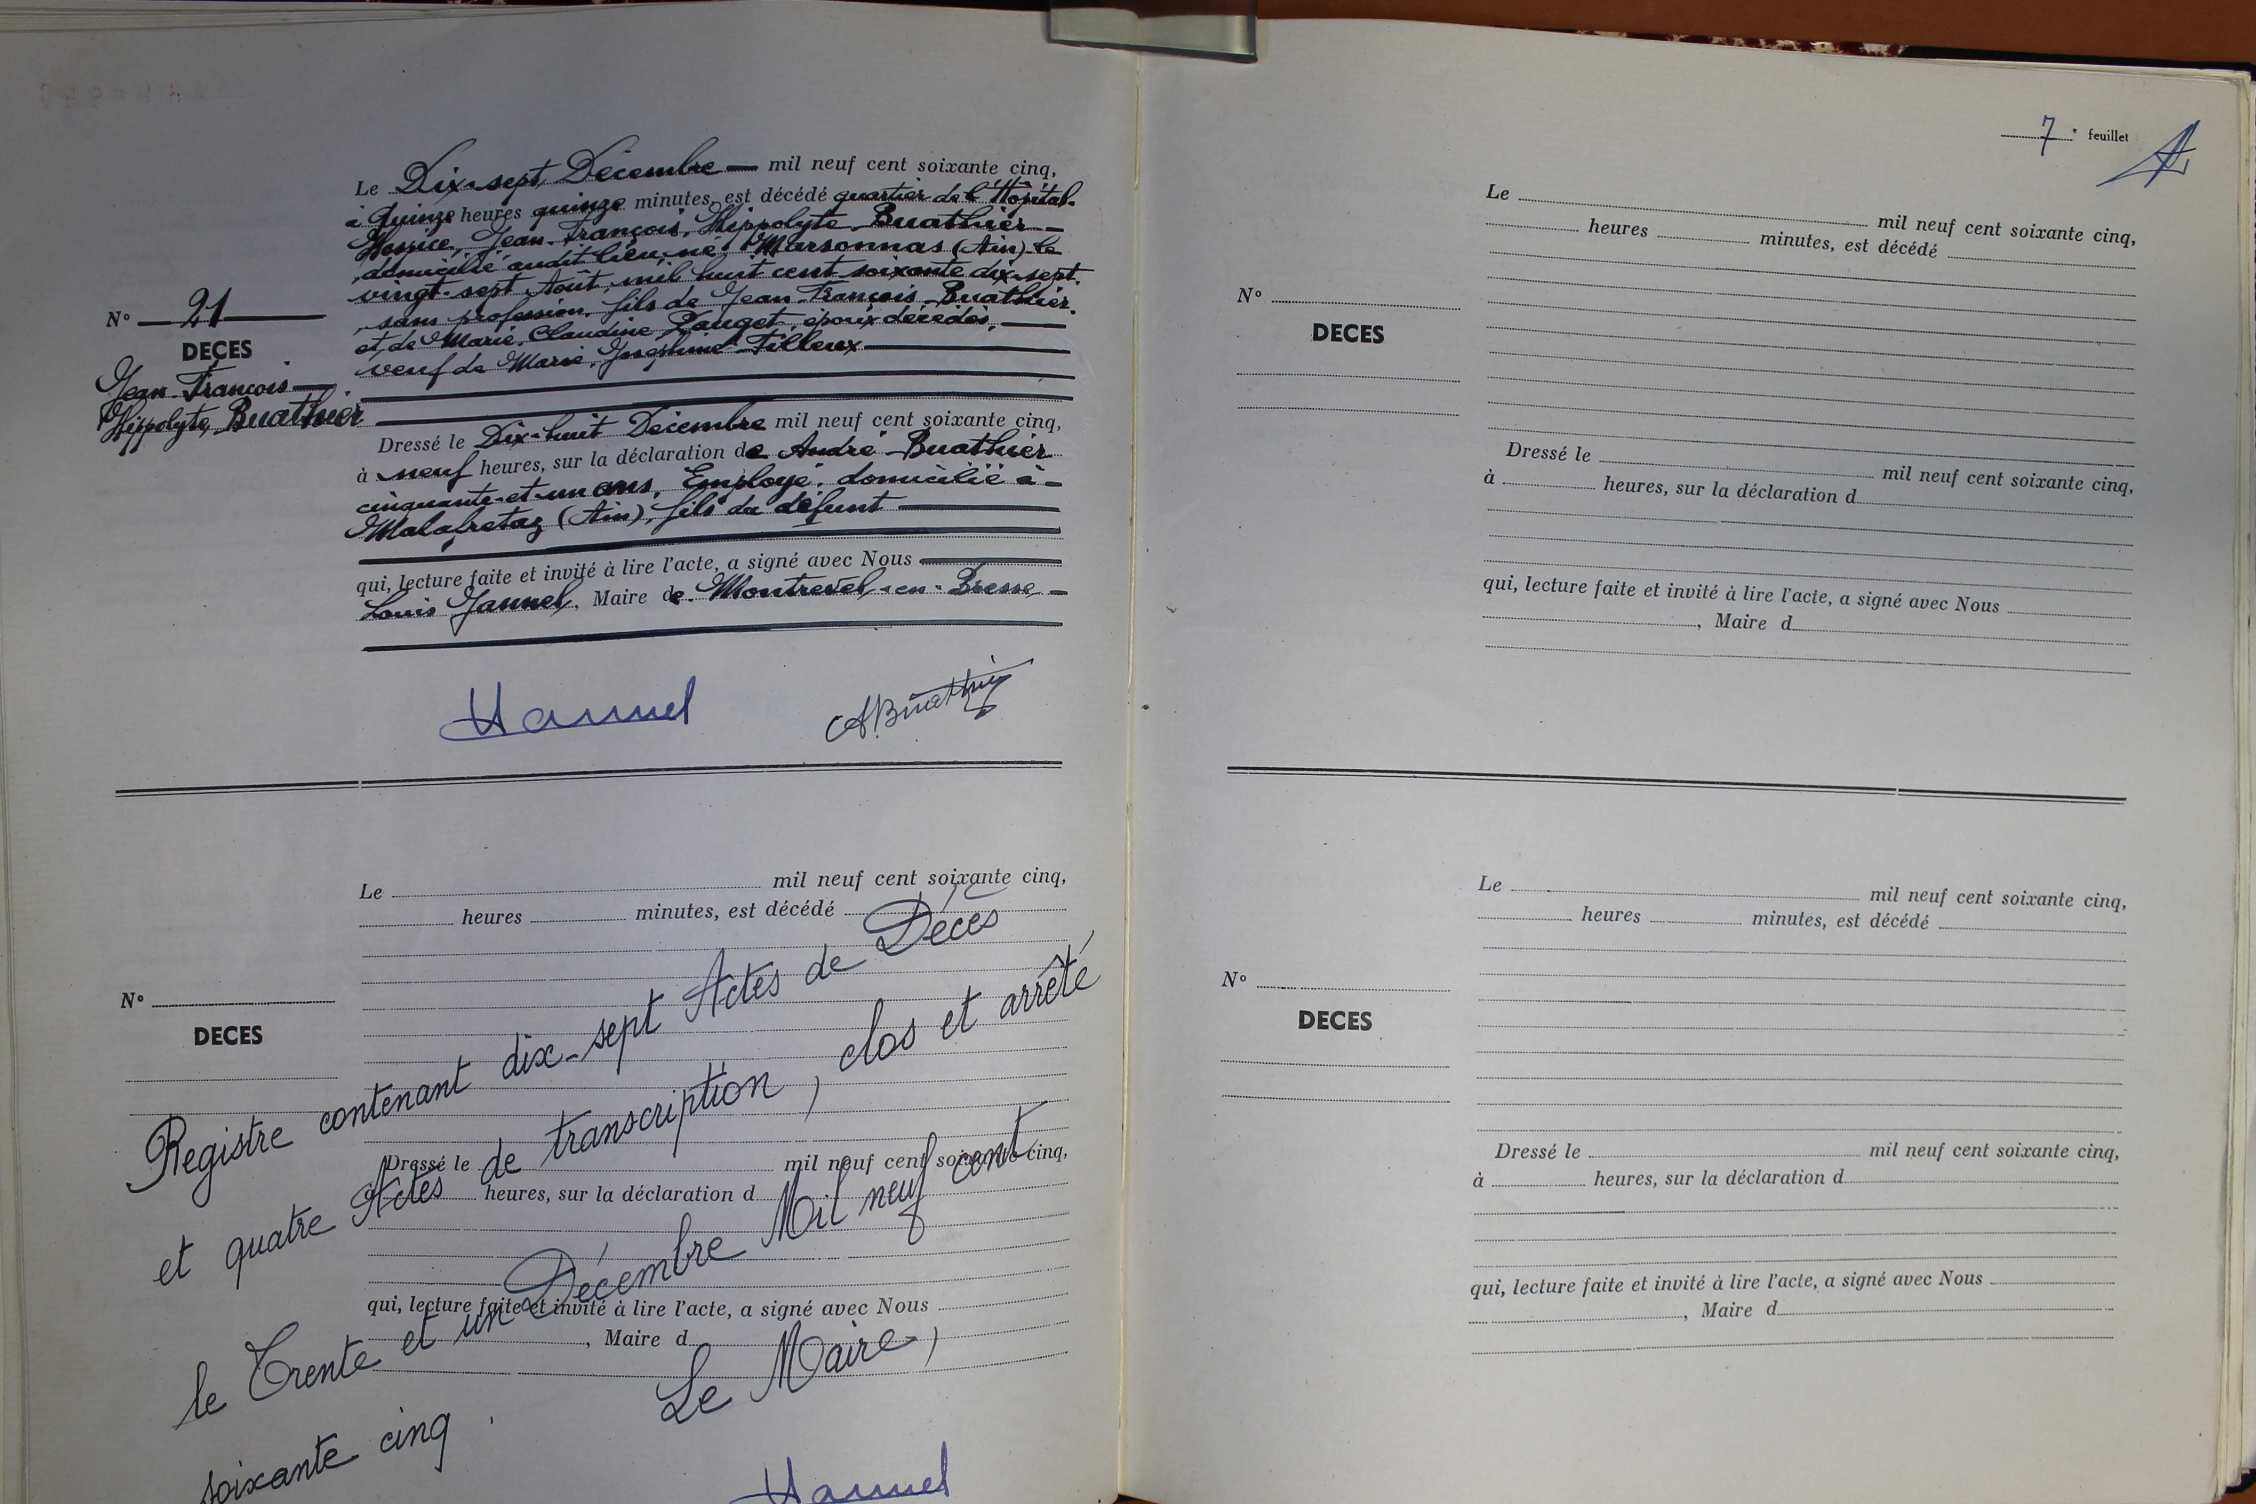 Le Dix-sept Décembre — mil neuf cent soixante cinq,
à Quinze heures quinze minutes, est décédé quartier de l'Hôpital-
Hospice, Jean-François, Hippolyte, Buathier —
domicilié audit lieu, né à Marsonnas (Ain) le
vingt-sept Août, mil huit cent soixante dix-sept.
sans profession, fils de Jean-François Buathier.
et de Marie, Claudine, époux décédés, —
veuf de Marie, Joséphine Filleux —
N° — 21 —
DECES
Jean-François —
Hippolyte, Buathier
Dressé le Dix-huit Décembre mil neuf cent soixante cinq,
à neuf heures, sur la déclaration de André Buathier
cinquante-et-un ans, Employé, domicilié à -
Malafretaz (Ain), fils du défunt —
qui, lecture faite et invité à lire l'acte, a signé avec Nous —
Louis Jannel, Maire de Montrevel-en-Bresse —
Jannel
A. Buathier
Le mil neuf cent soixante cinq,
heures minutes, est décédé
N°
DECES
Dressé le mil neuf cent soixante cinq,
à heures, sur la déclaration d
qui, lecture faite et invité à lire l'acte, a signé avec Nous
, Maire d
Registre contenant dix-sept Actes de Décès
et quatre Actes de transcription, clos et arrêté
le Trente et un Décembre Mil neuf cent
soixante cinq.
Le Maire,
Jannel
7e feuillet
Le mil neuf cent soixante cinq,
heures minutes, est décédé
N°
DECES
Dressé le mil neuf cent soixante cinq,
à heures, sur la déclaration d
qui, lecture faite et invité à lire l'acte, a signé avec Nous
, Maire d
Le mil neuf cent soixante cinq,
heures minutes, est décédé
N°
DECES
Dressé le mil neuf cent soixante cinq,
à heures, sur la déclaration d
qui, lecture faite et invité à lire l'acte, a signé avec Nous
, Maire d